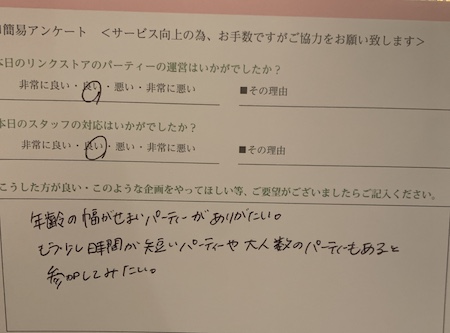 簡易アンケート <サービス向上の為、お手数ですがご協力をお願い致します>
本日のリンクストアのパーティーの運営はいかがでしたか?
非常に良い・良い・悪い・非常に悪い ■その理由
本日のスタッフの対応はいかがでしたか?
非常に良い・良い・悪い・非常に悪い ■その理由
こうした方が良い・このような企画をやってほしい等、ご要望がございましたらご記入ください。
年齢の幅がせまいパーティーがありがたい。
もう少し時間が短いパーティーや大人数のパーティーもあると
参加してみたい。